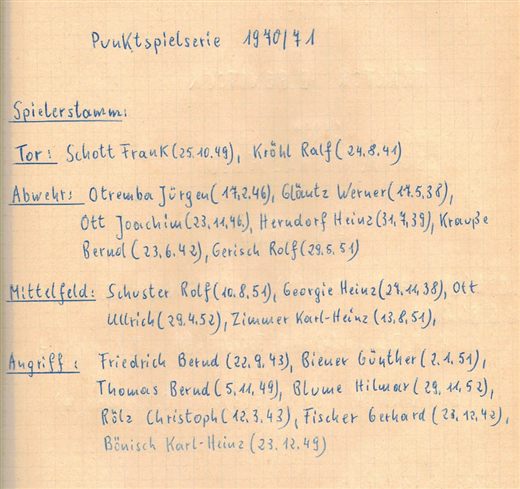 Punktspielserie 1970/71
Spielerstamm:
Tor: Schott Frank (25.10.49), Kröhl Ralf (24.8.41)
Abwehr: Otremba Jürgen (17.2.46), Gläntz Werner (17.5.38),
Ott Joachim (23.11.46), Herndorf Heinz (31.7.39), Krauße
Bernd (23.6.42), Gerisch Rolf (29.5.51)
Mittelfeld: Schuster Rolf (10.8.51), Georgie Heinz (29.11.38), Ott
Ullrich (29.4.52), Zimmer Karl-Heinz (13.8.51),
Angriff: Friedrich Bernd (22.9.43), Biener Günther (2.1.51),
Thomas Bernd (5.11.49), Blume Hilmar (29.11.52),
Rölz Christoph (12.3.43), Fischer Gerhard (23.12.42),
Bönisch Karl-Heinz (23.12.49)